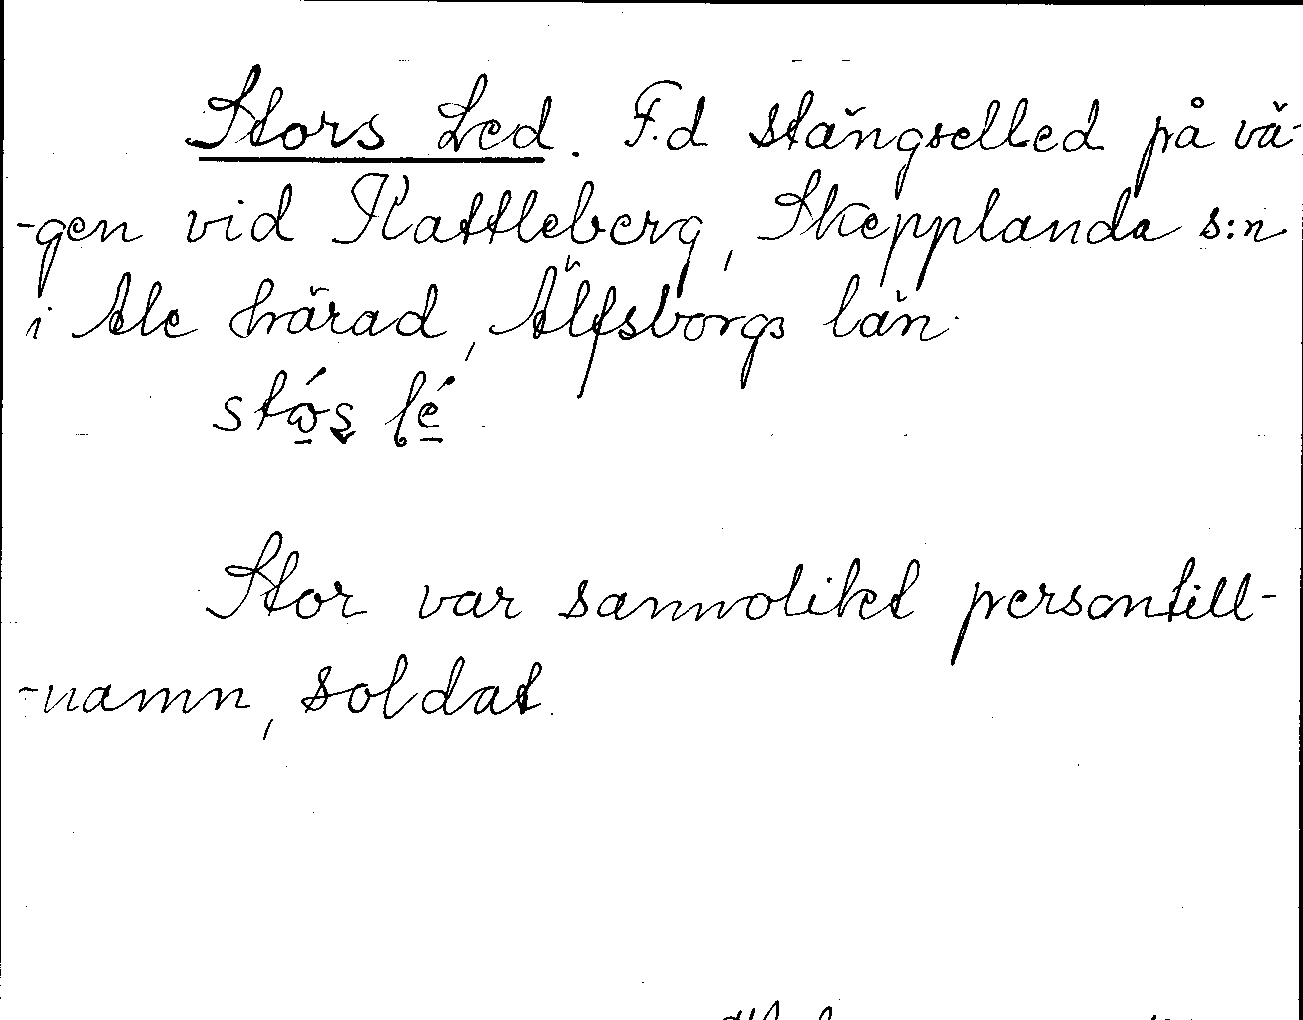 Stors Led. F.d stängselled på vä-
-gen vid Kattleberg, Skepplanda s:n
i Ale härad, Älfsborgs län.
Stor var sannolikt persontill-
-namn, soldat.